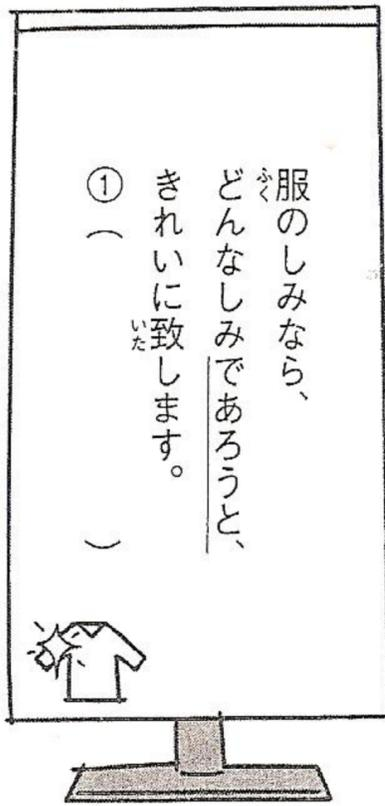 服のしみなら、
どんなしみであろうと、
きれいに致します。
①（　　　）